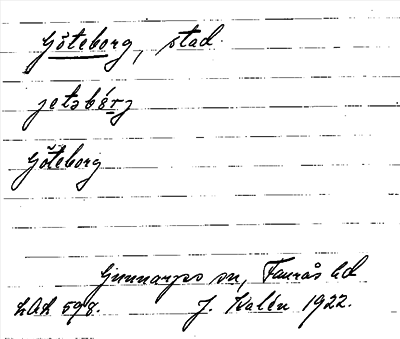 Göteborg, stad.
jetsbérj
Göteborg
Gunnarps sn, Faurås hd
LAL 598. J. Kalén 1922.